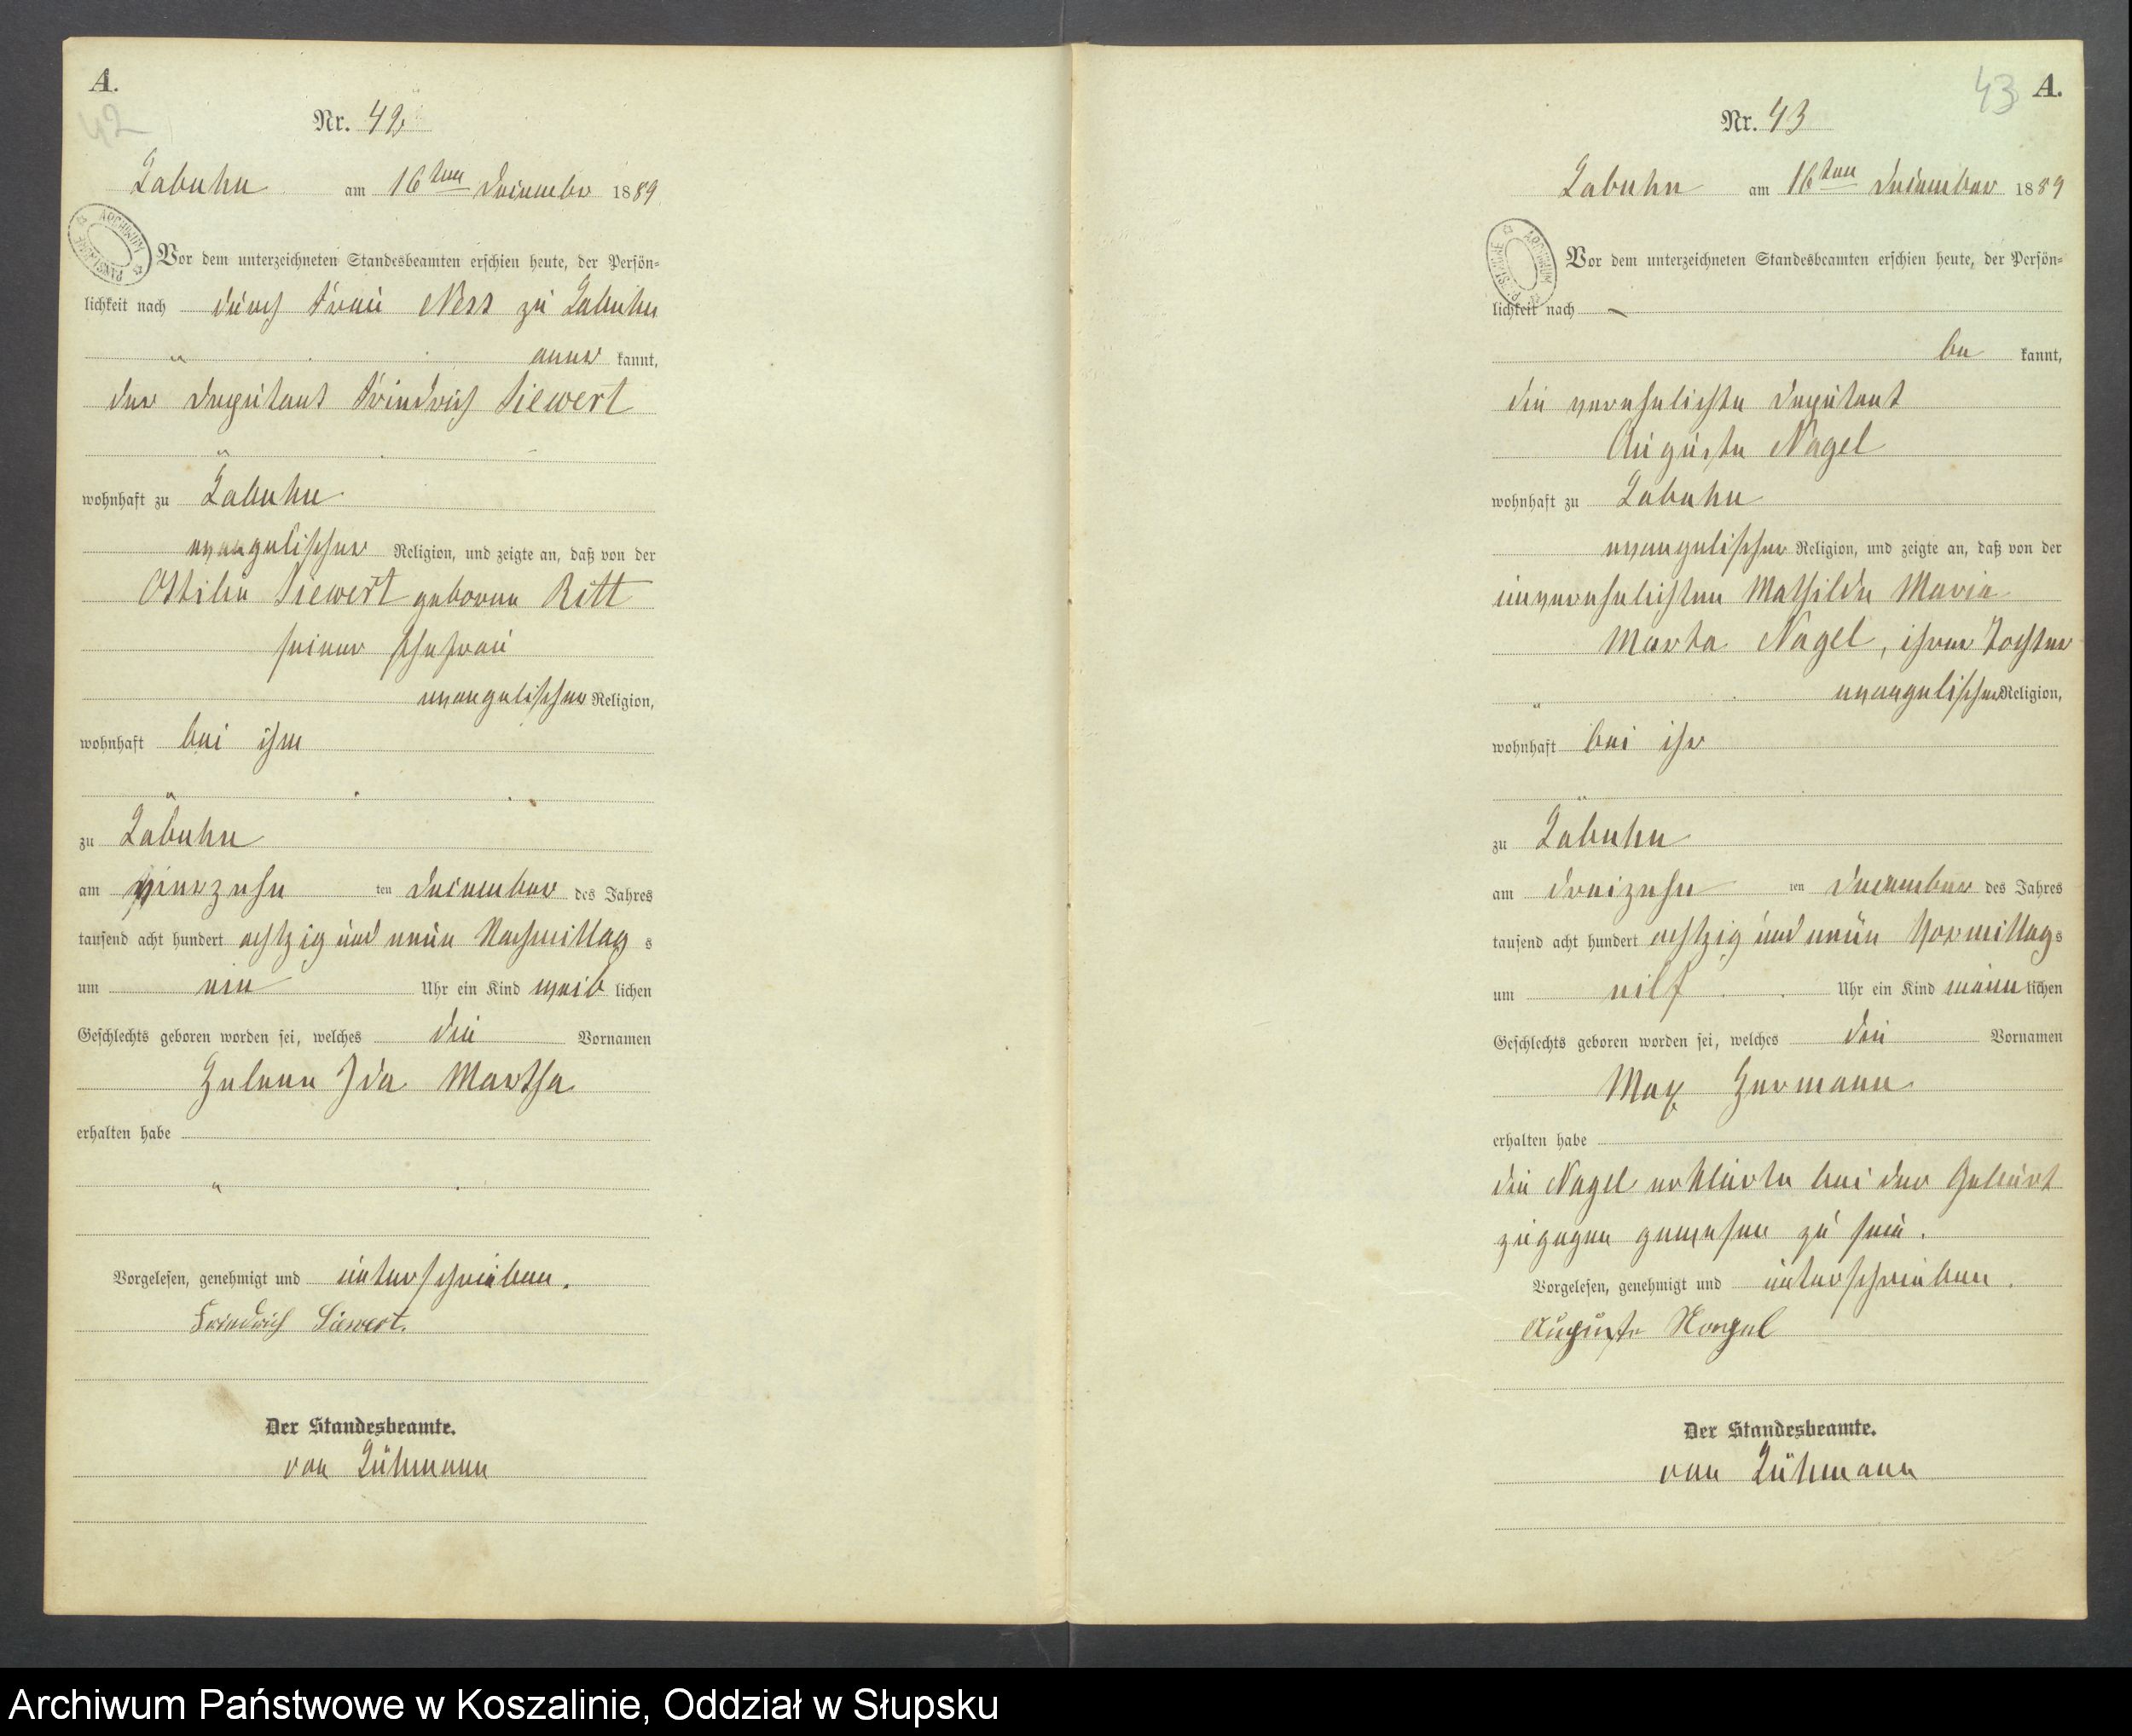 A.
42
Nr. 42
Labuhn am 16ten Dezember 1889
ARCHIWUM PAŃSTWOWE
Vor dem unterzeichneten Standesbeamten erschien heute, der Persön=
lichkeit nach durch Frau Ness zu Labuhn
aner kannt,
der Deputant Friedrich Siewert
wohnhaft zu Labuhn
evangelischer Religion, und zeigte an, daß von der
Ottilie Siewert geborene Ritt
seiner Ehefrau
evangelischer Religion,
wohnhaft bei ihm
zu Labuhn
am vierzehn ten Dezember des Jahres
tausend acht hundert achtzig und neun Nachmittag s
um ein Uhr ein Kind weib lichen
Geschlechts geboren worden sei, welches die Vornamen
Helene Ida Martha
erhalten habe
Vorgelesen, genehmigt und unterschrieben.
Friedrich Siewert.
Der Standesbeamte.
von
43
A.
Nr. 43
Labuhn am 16ten Dezember 1889
ARCHIWUM
Vor dem unterzeichneten Standesbeamten erschien heute, der Persön=
lichkeit nach
be kannt,
die verehelichte Deputant
Auguste Nagel
wohnhaft zu Labuhn
evangelischer Religion, und zeigte an, daß von der
unverehelichten Mathilde Maria
Marta Nagel, ihrer Tochter
evangelischer Religion,
wohnhaft bei ihr
zu Labuhn
am dreizehn ten Dezember des Jahres
tausend acht hundert achtzig und neun Vormittag s
um eilf Uhr ein Kind männ lichen
Geschlechts geboren worden sei, welches die Vornamen
Max Hermann
erhalten habe
die Nagel erklärte bei der Geburt
zugegen gewesen zu sein.
Vorgelesen, genehmigt und unterschrieben.
Auguste Nagel
Der Standesbeamte.
von
Archiwum Państwowe w Koszalinie, Oddział w Słupsku